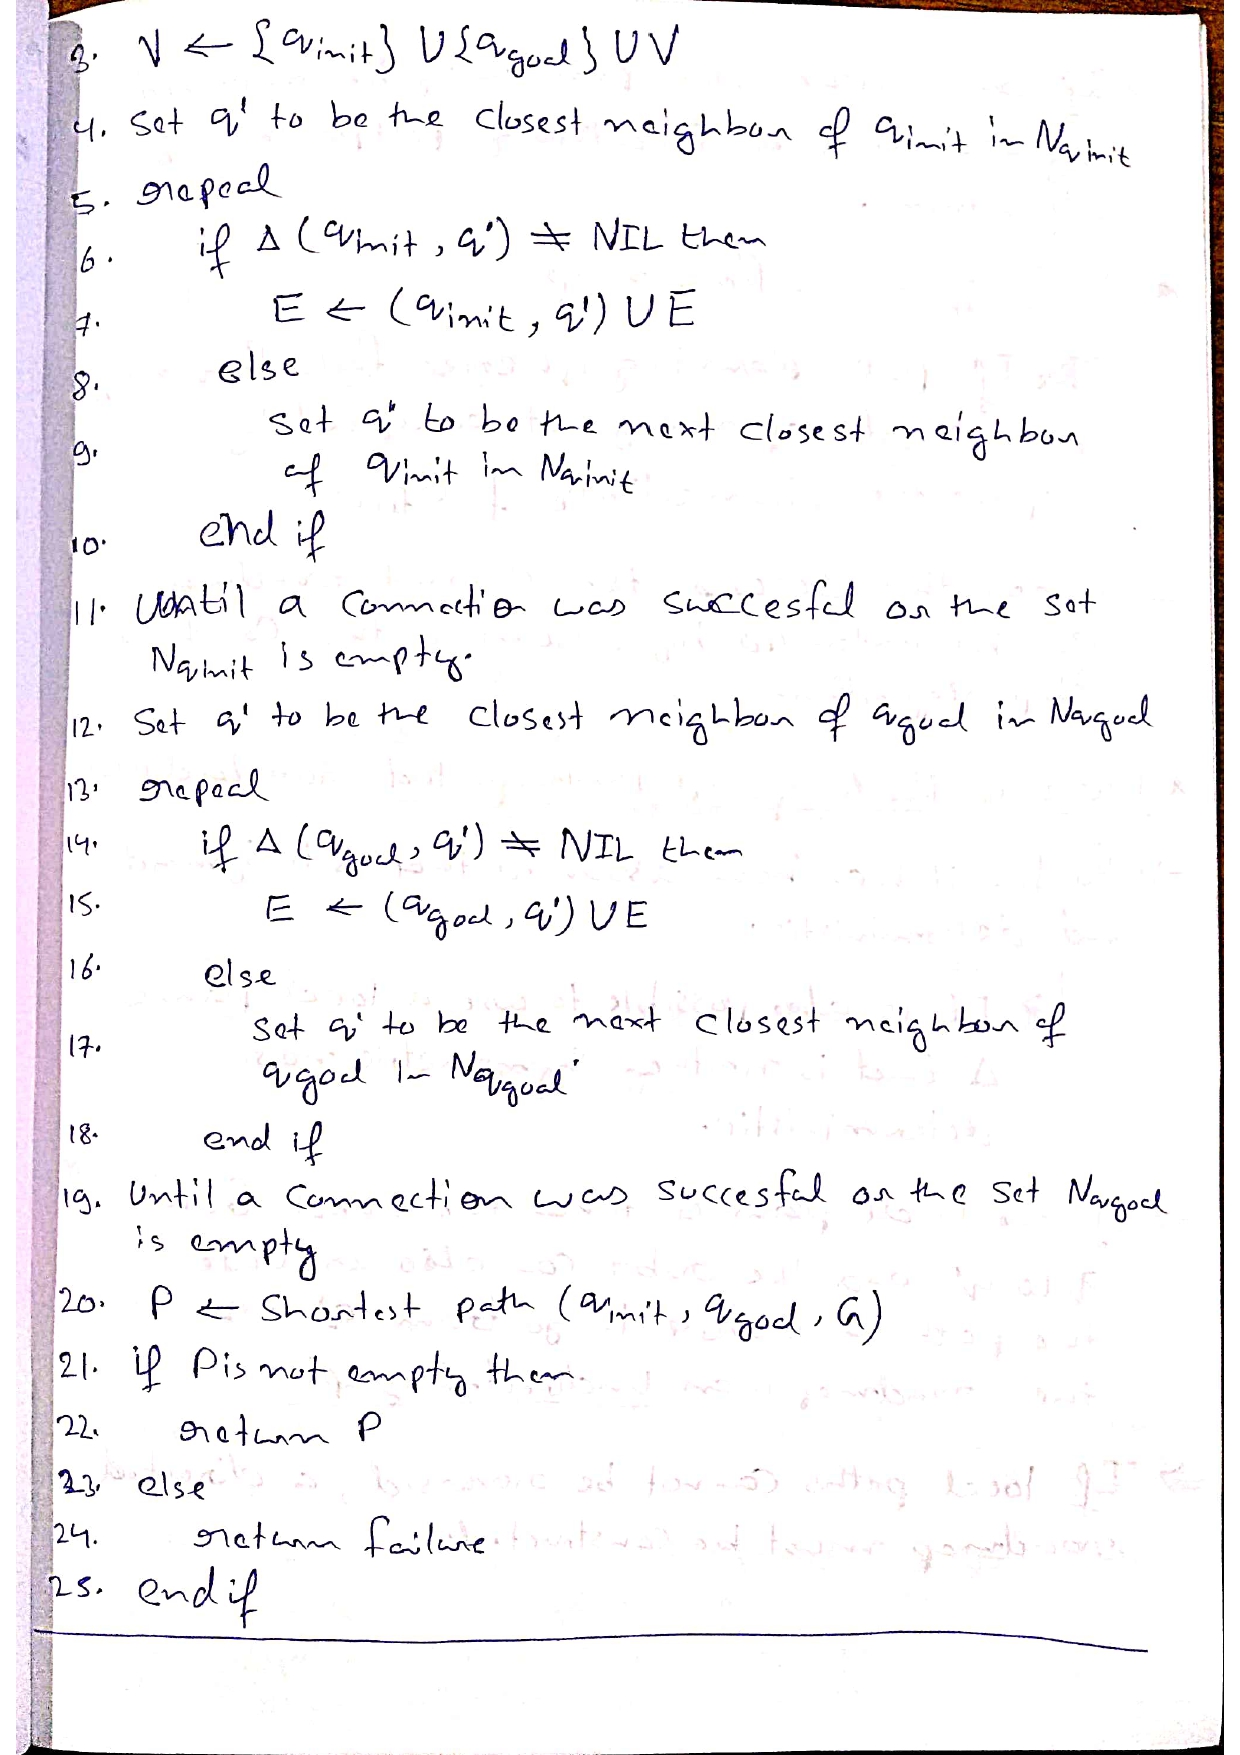 3. V ← {qinit} U {qgoal} U V
4. Set q' to be the closest neighbor of qinit in Nqinit
5. repeat
6. if Δ (qinit, q') ≠ NIL then
7. E ← (qinit, q') U E
8. else
9. set q' to be the next closest neighbor
of qinit in Nqinit
10. end if
11. Until a connection was succesful or the set
Nqinit is empty.
12. Set q' to be the closest neighbor of qgoal in Nqgoal
13. repeat
14. if Δ (qgoal, q') ≠ NIL then
15. E ← (qgoal, q') U E
16. else
17. set q' to be the next closest neighbor of
qgoal in Nqgoal
18. end if
19. Until a connection was succesful or the set Nqgoal
is empty
20. P ← Shortest path (qinit, qgoal, G)
21. if P is not empty then.
22. return P
23. else
24. return failure
25. end if